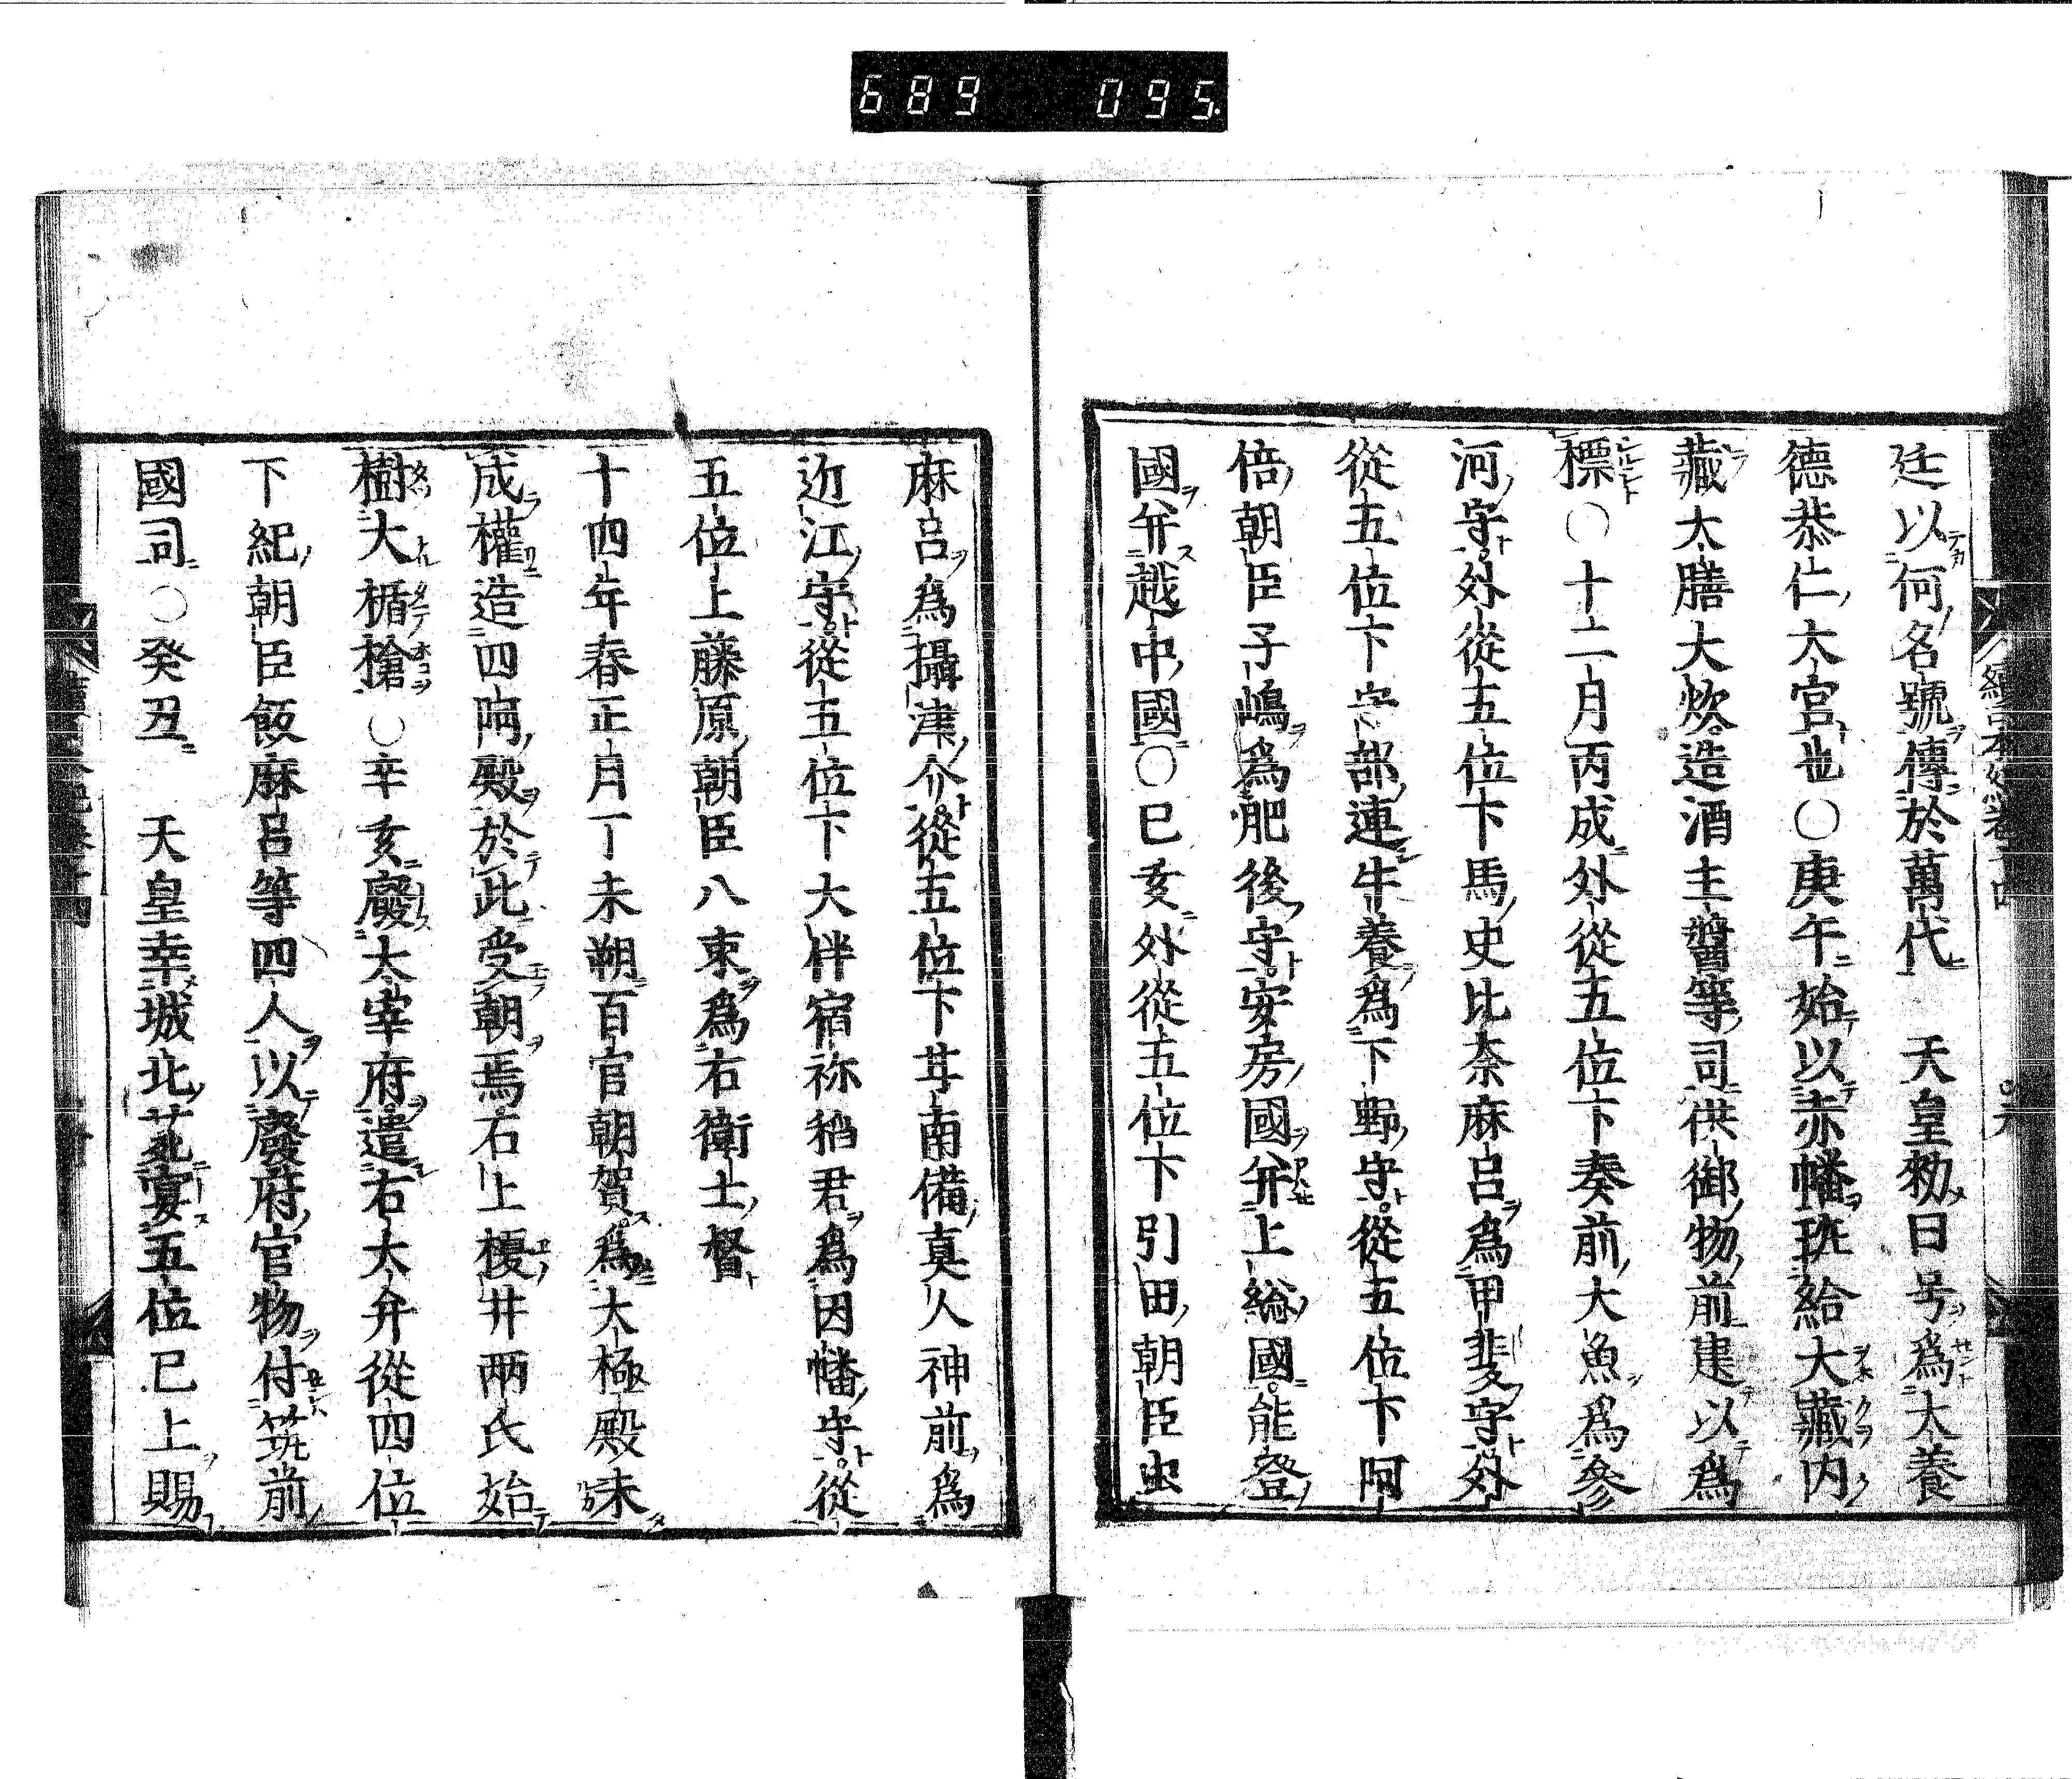 689 095
廷以何名號傳於萬代 天皇勑曰号爲太養
德恭仁大宮也○庚午始以赤幡班給大藏内
藏大膳大炊造酒主醬等司供御物前建以爲
標○十二月丙戌外從五位下奏前大魚爲參
河守外從五位下馬史比奈麻呂爲甲斐守外
從五位下宍部連牛養爲下野守從五位下阿
倍朝臣子嶋爲肥後守安房國并上総國能登
國并越中國○已亥外從五位下引田朝臣虫
麻呂爲攝津介從五位下甘南備真人神前爲
近江守從五位下大伴宿祢稻君爲因幡守從
五位上藤原朝臣八束爲右衛士督
十四年春正月丁未朔百官朝賀爲大極殿未
成權造四阿殿於此受朝焉石上榎井兩氏始
樹大楯槍○辛亥廢太宰府遣右大弁從四位
下紀朝臣飯麻呂等四人以廢府官物付筑前
國司○癸丑 天皇幸城北苑宴五位已上賜